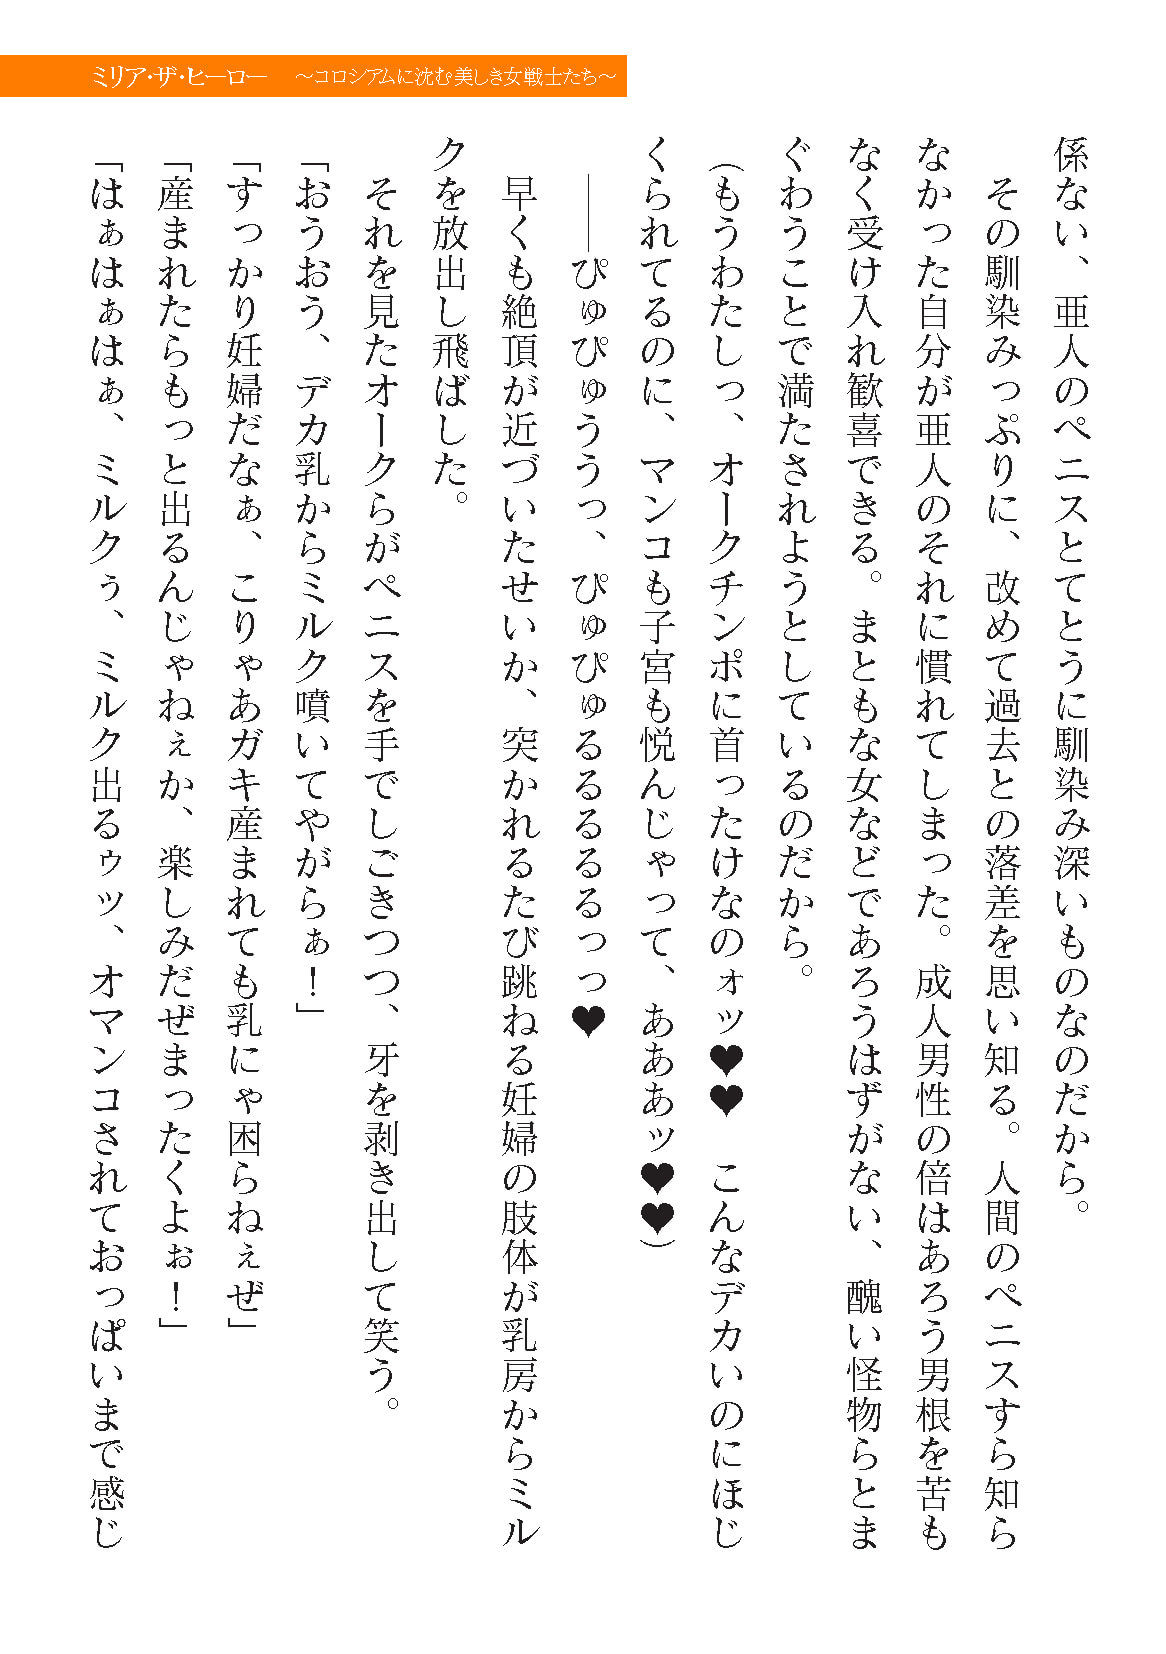 ミリア・ザ・ヒーロー ～コロシアムに沈む美しき女戦士たち～
係ない、亜人のペニスとてとうに馴染み深いものなのだから。
　その馴染みっぷりに、改めて過去との落差を思い知る。人間のペニスすら知ら
なかった自分が亜人のそれに慣れてしまった。成人男性の倍はあろう男根を苦も
なく受け入れ歓喜できる。まともな女などであろうはずがない、醜い怪物らとま
ぐわうことで満たされようとしているのだから。
（もうわたしっ、オークチンポに首ったけなのォッ♥♥　こんなデカいのにほじ
くられてるのに、マンコも子宮も悦んじゃって、あああッ♥♥）
　――ぴゅぴゅううっ、ぴゅぴゅるるるるるっっ♥
　早くも絶頂が近づいたせいか、突かれるたび跳ねる妊婦の肢体が乳房からミル
クを放出し飛ばした。
　それを見たオークらがペニスを手でしごきつつ、牙を剥き出して笑う。
「おうおう、デカ乳からミルク噴いてやがらぁ！」
「すっかり妊婦だなぁ、こりゃあガキ産まれても乳にゃ困らねぇぜ」
「産まれたらもっと出るんじゃねぇか、楽しみだぜまったくよぉ！」
「はぁはぁはぁ、ミルクぅ、ミルク出るゥッ、オマンコされておっぱいまで感じ